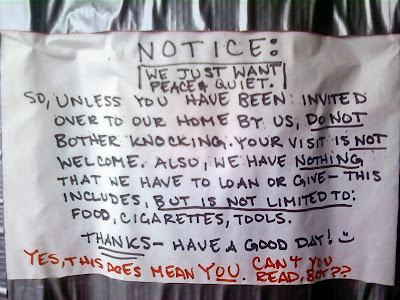 NOTICE:
WE JUST WANT
PEACE & QUIET.
SO, UNLESS YOU HAVE BEEN INVITED
OVER TO OUR HOME BY US, DO NOT
BOTHER KNOCKING. YOUR VISIT IS NOT
WELCOME. ALSO, WE HAVE NOTHING
THAT WE HAVE TO LOAN OR GIVE - THIS
INCLUDES, BUT IS NOT LIMITED TO:
FOOD, CIGARETTES, TOOLS.
THANKS - HAVE A GOOD DAY!
YES, THIS DOES MEAN YOU. CAN'T YOU
READ, BOY??